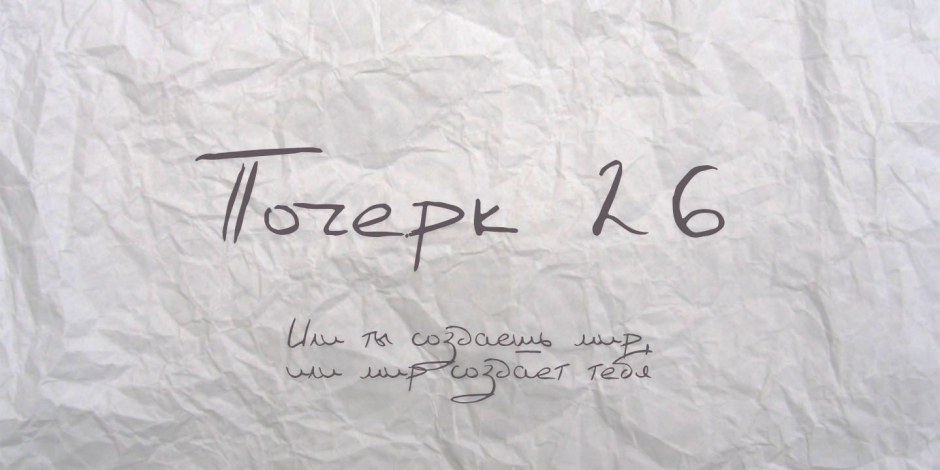 Почерк 26
Или ты создаешь мир,
или мир создает тебя